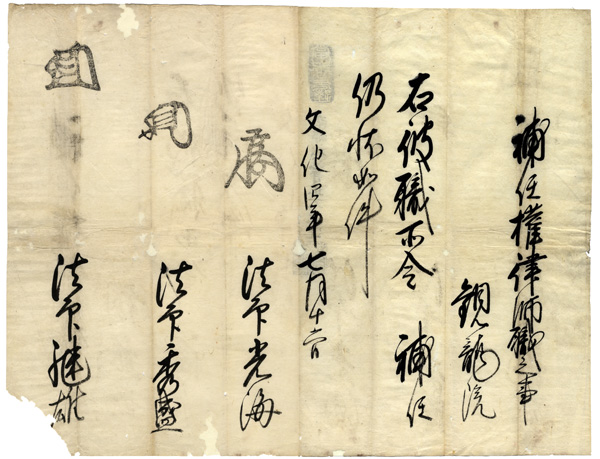 補任權律師職之事
龍院
右彼職所令 補任
仍状如件
文化四年七月十日
法印光海
法印秀盛
法印継雄